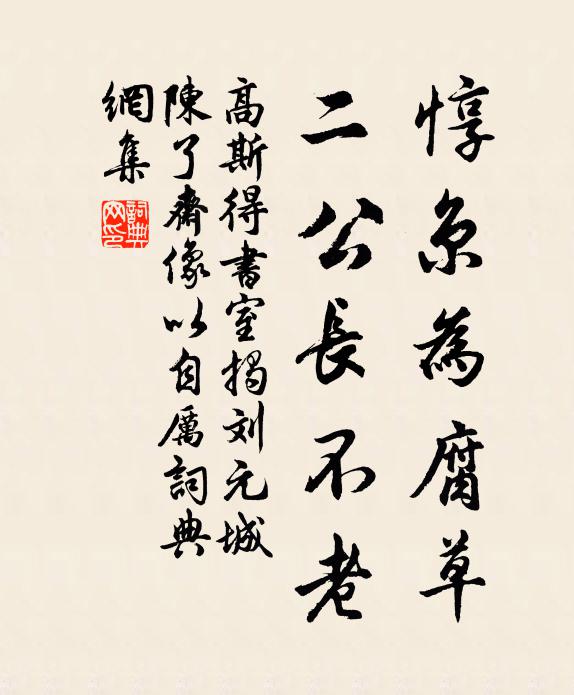 惇京為腐草
二公長不老
高斯得書室揭刘元城
陳了齋像以自厲詞典
網集
詞典網印